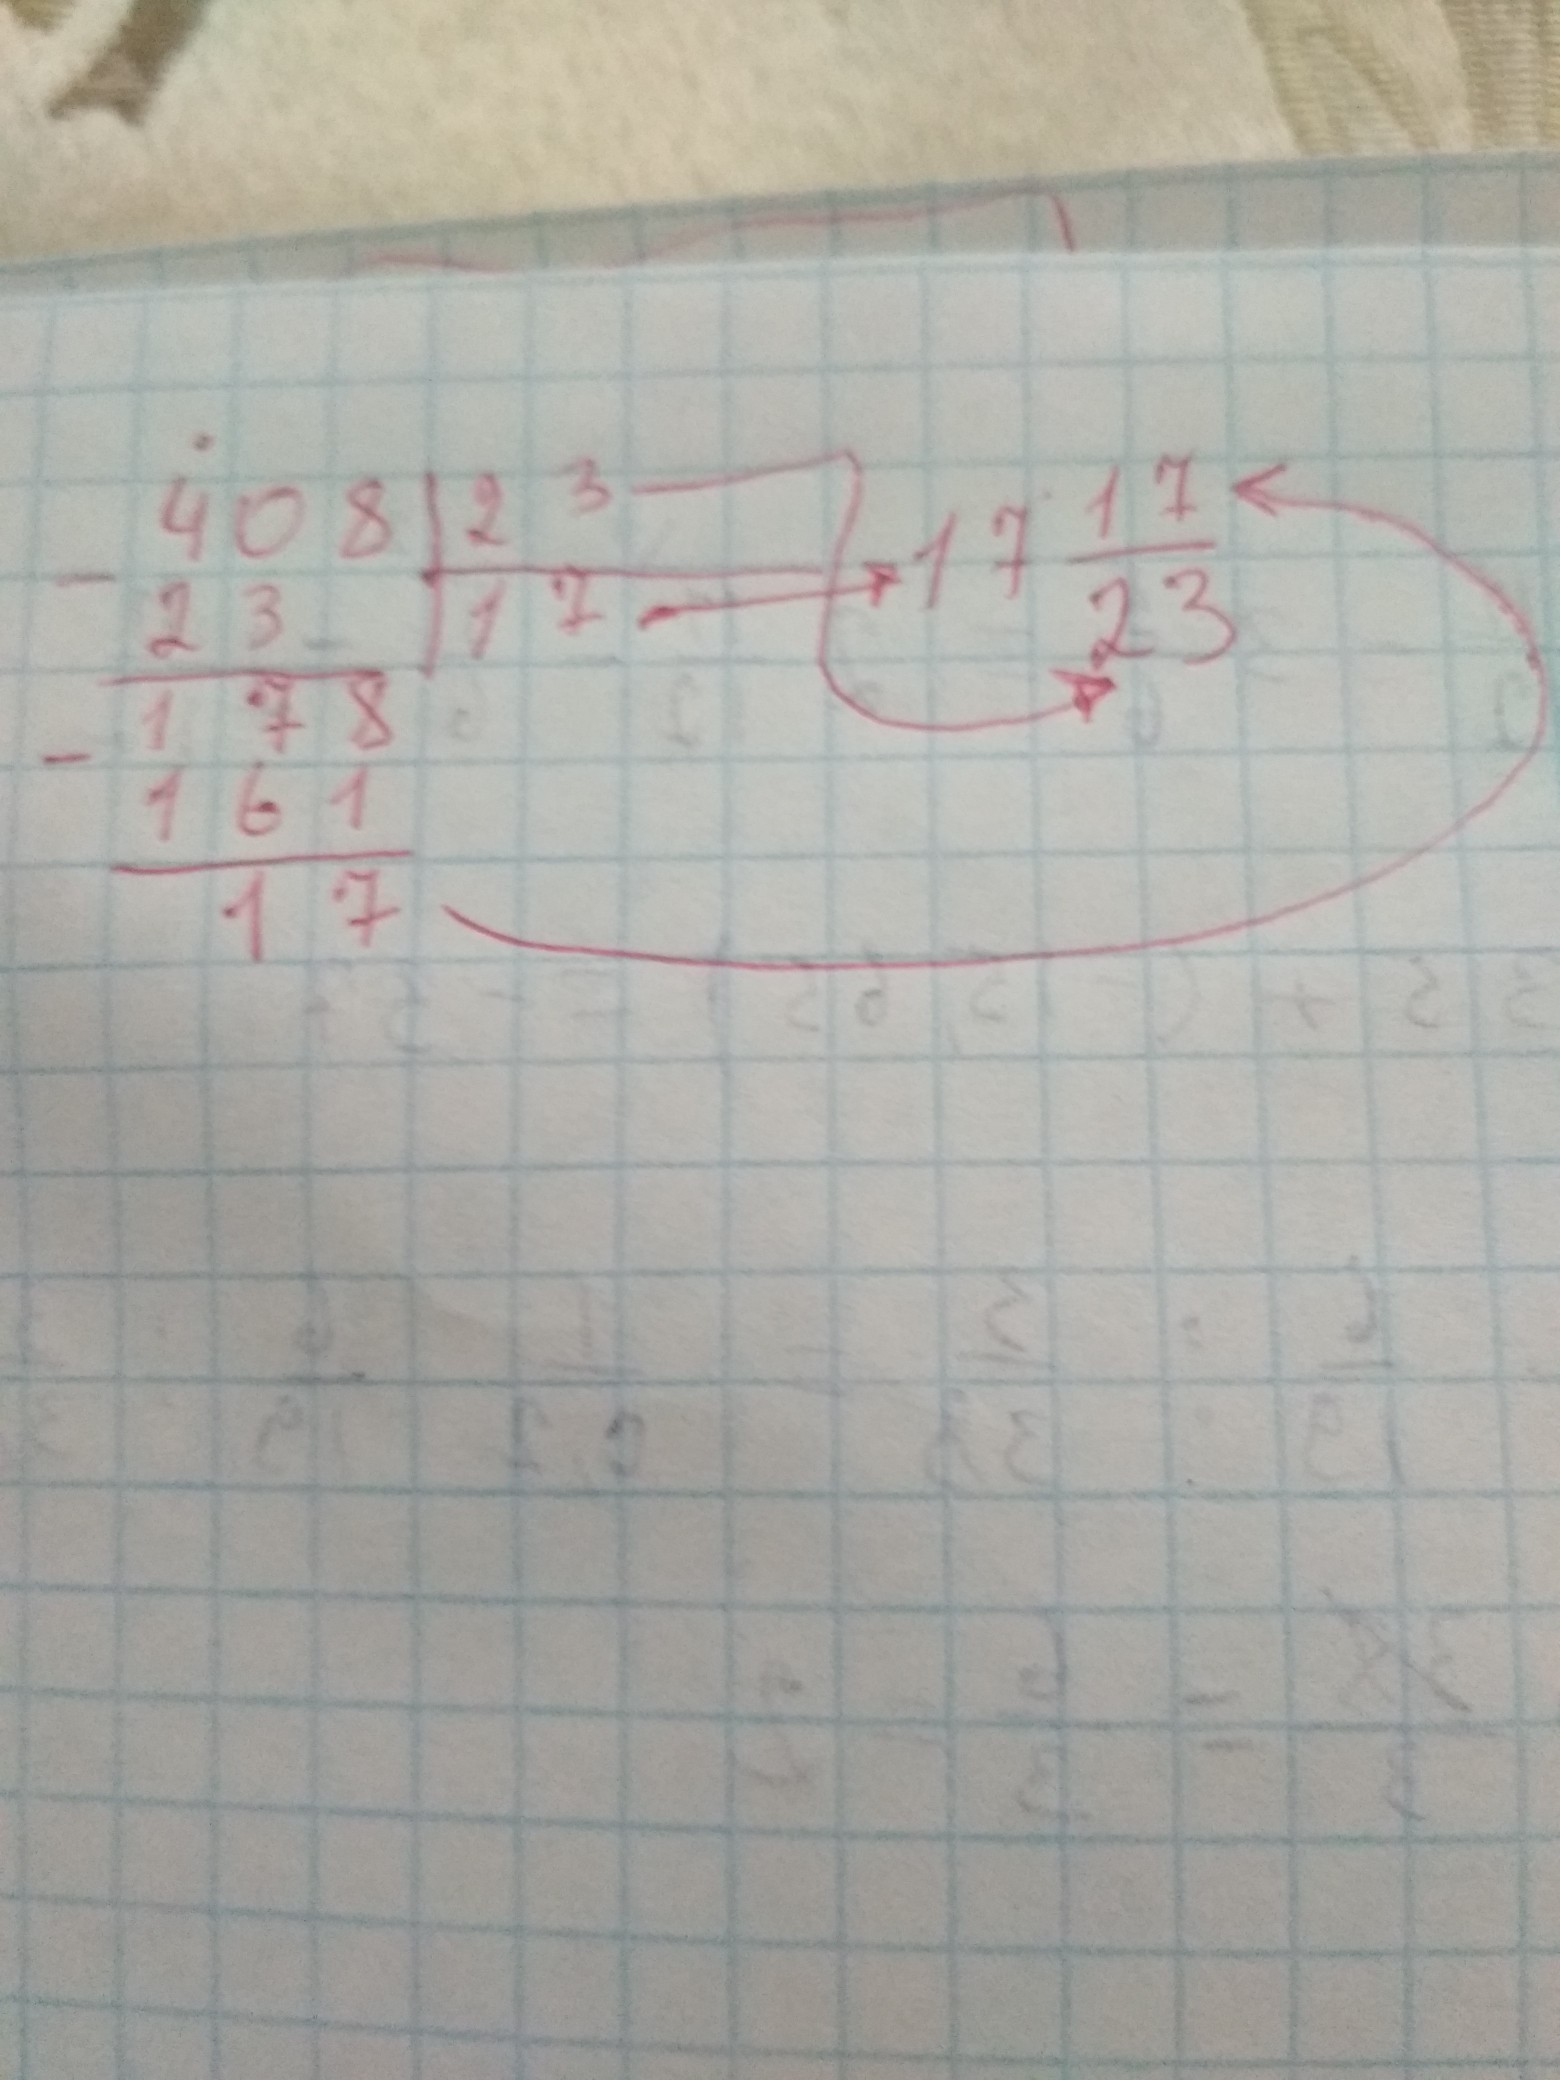 408 | 23
- 23 | 17 → 17 17/23
178
- 161
17